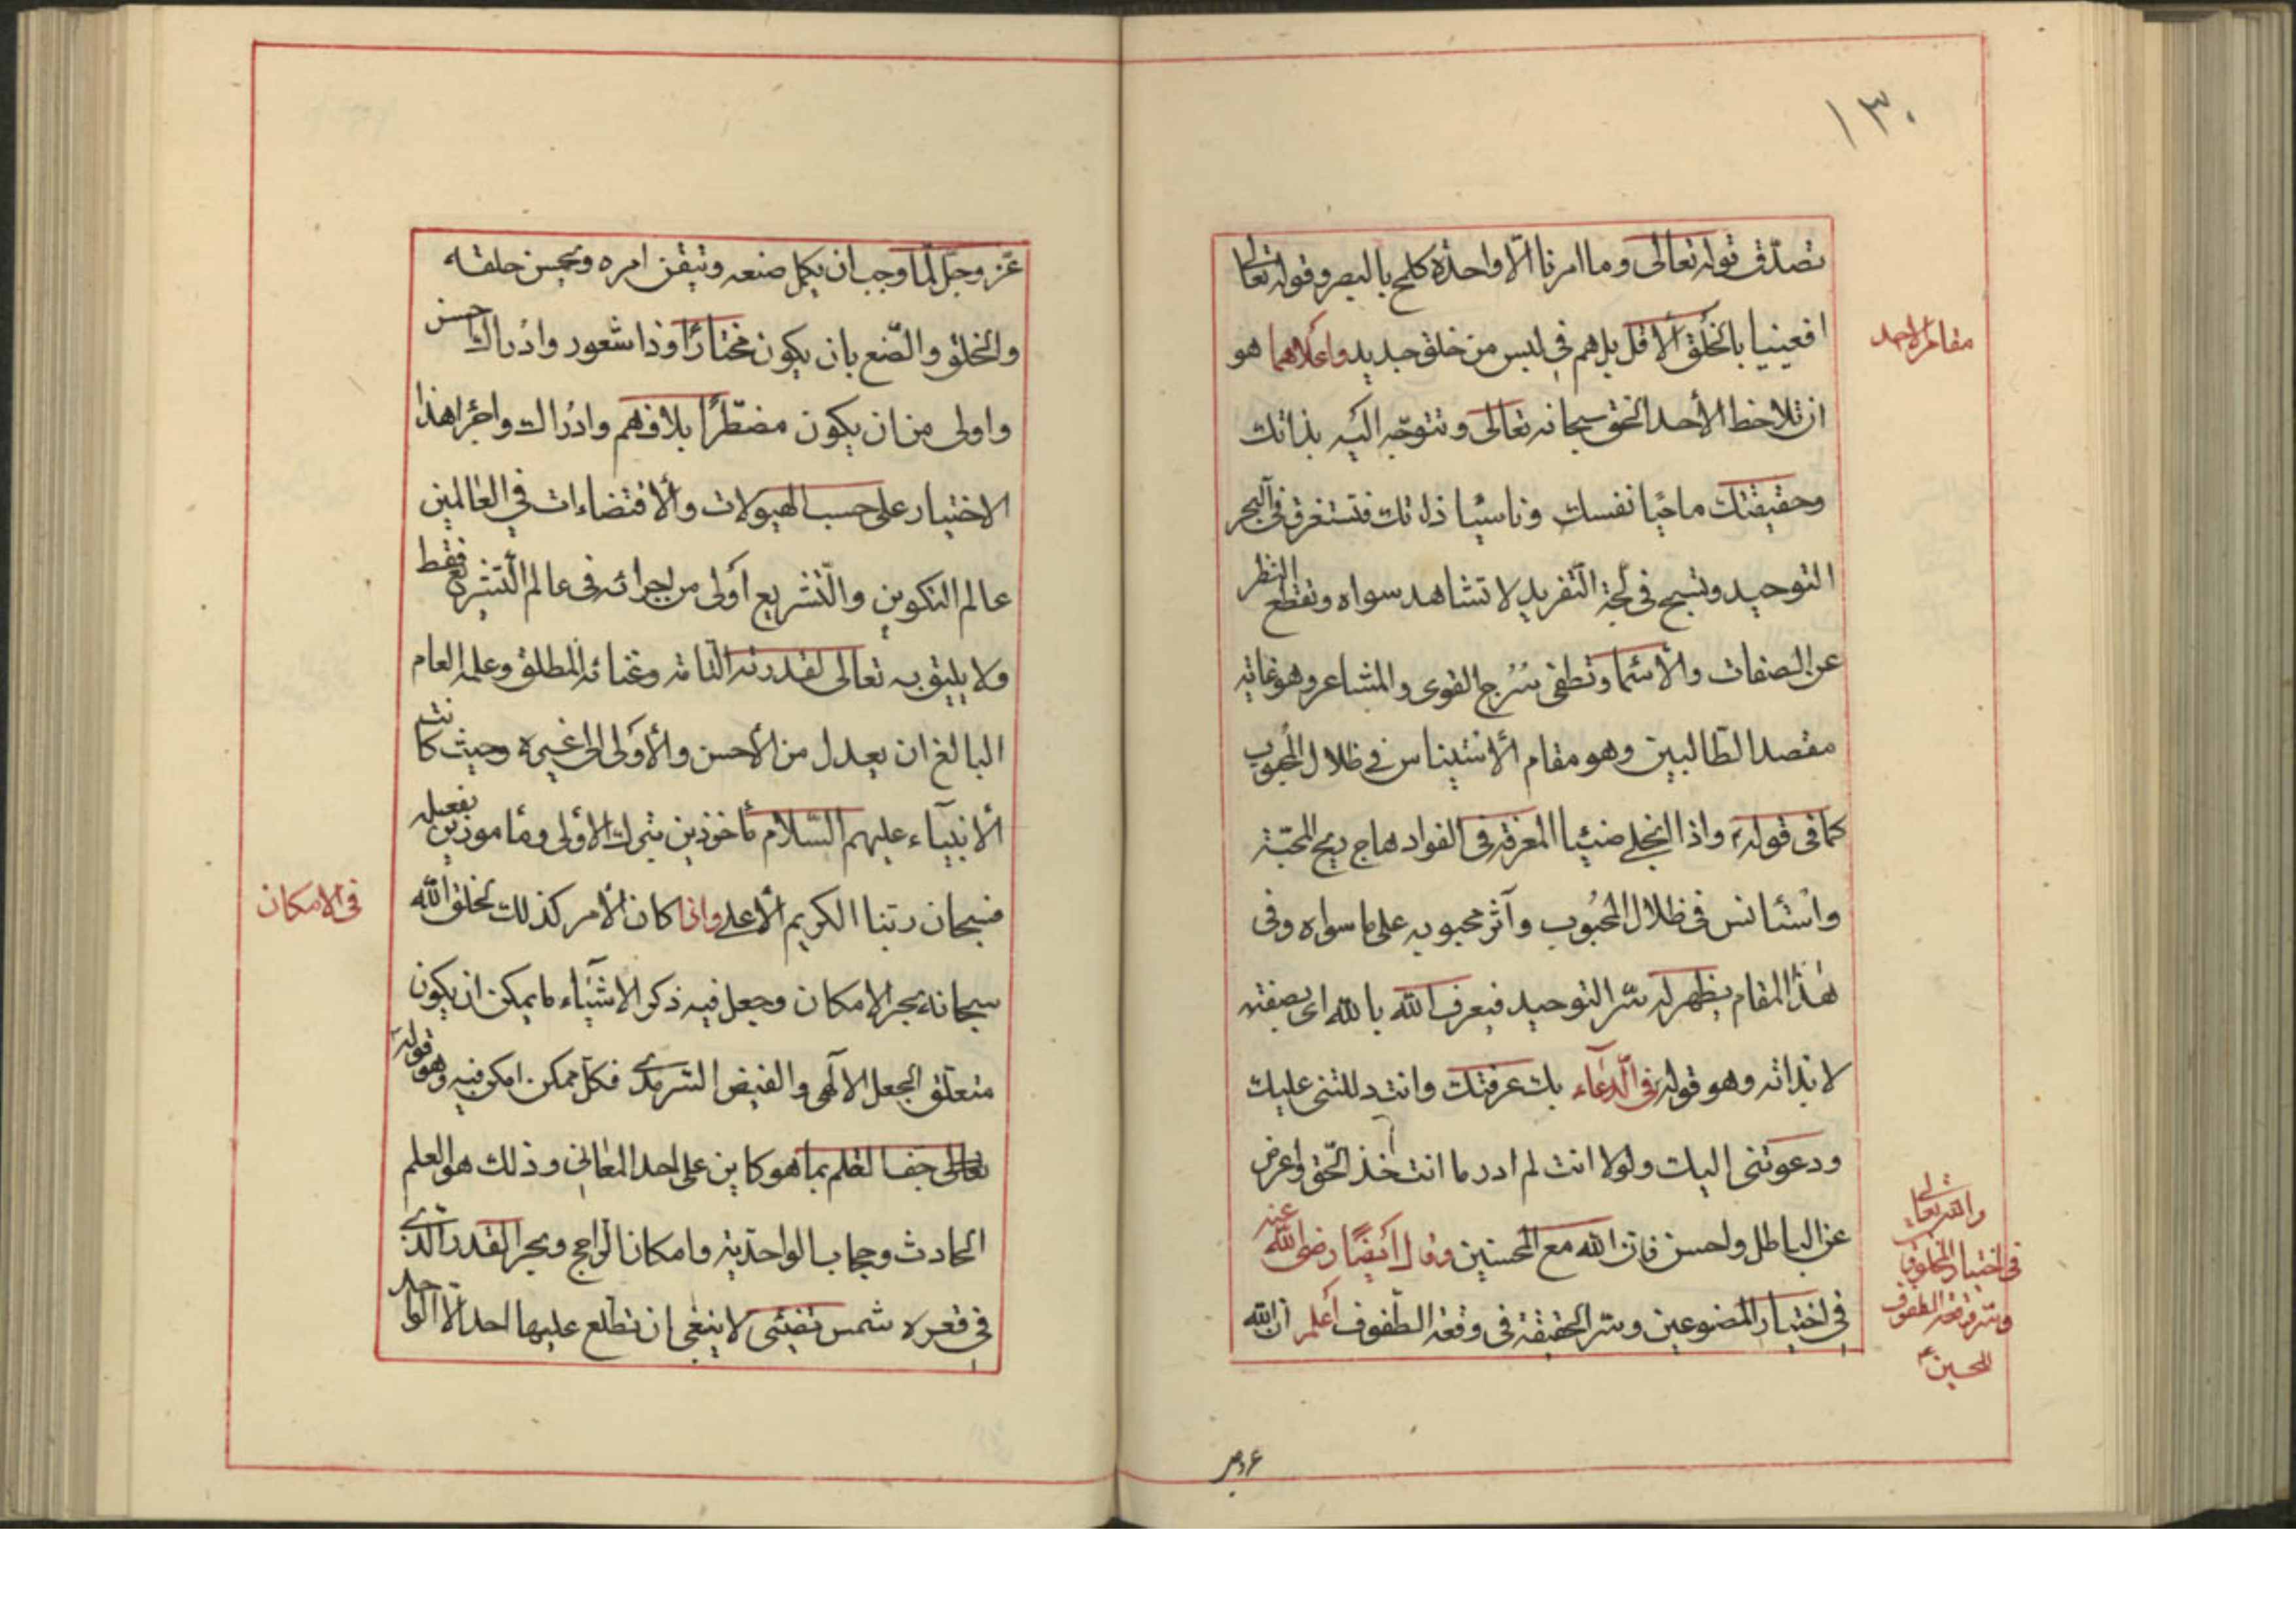 ١٣٠
تصدّق قوله تعالى وما امرنا الّا واحدة كلمح بالبصر وقوله تعالى
افعيينا بالخلق الاول بل هم في لبس من خلق جديد واعلاهما هو
مقام الاحد
ان تلاحظ الأحد الحق سبحانه تعالى وتتوجّه اليه بذاتك
وحقيقتك ماحيا نفسك وناسيا ذاتك فتستغرق في البحر
التوحيد وتسبح في لجة التّفريد لا تشاهد سواه وتقطع النظر
عن الصفات والأسما وتطفى سُرج القوى والمشاعر وهو غاية
مقصد الطالبين وهو مقام الأستيناس في ظلال المحبوب
كما في قوله واذا انجلى ضيا المعرفة في الفواد هاج ريح المحبّة
واستأنس في ظلال المحبُوب وآثر محبوبه على ما سواه وفى
هذا المقام يظهر له سّر التوحيد فيعرف الله بالله اى بصفته
لا بذاته وهو قوله في الدّعآء بك عرفتك وانت دللتنى عليك
ودعوتنى اليك ولولا انت لم ادر ما انت خذ الحّق واعرض
عن الباطل واحسن فان الله مع المحسنين وقال ايضًا رضى الله عنه
في اختيار المصنوعين وسر الحقيقة في وقعة الطّفوف أعلم ان الله
والله تعالى
في اختيار المخلوق
وسّر وقعة الطفوف
للحسين ع
عّز وجّل لّما وجب ان يكمل صنعه ويتيقن امره ويحسن خلقه
والخلق والصّنع بان يكون مختارًا وذا شعور وادراك احسن
واولى من ان يكون مضطّرًا بلا فهم وادراك واجرا هذا
الاختيار على حسب الهيولات والأقتضاءات في العالمين
عالم التكوين والتّشريع أولى من اجرائه فى عالم التّشريع فقط
ولا يليق به تعالى لقدرته التامة وغنائه المطلق وعلمه العام
البالغ ان يعدل من الأحسن والأولى الى غيره وحيث كانت
الأنبياء عليهم السّلام مأخوذين بترك الاولى ومأمورين بفعله
فسبحان ربنا الكريم الأعلى واذا كان الأمر كذلك فخلق الله
في الامكان
سبحانه بحر الامكان وجعل فيه ذكر الاشيآء ما يمكن ان يكون
متعلّق الجعل الالهى والفيض السّرمدى فكل ممكن امكن فيه وهو قوله
تعالى جف القلم بما هو كاين على احد المعانى وذلك هو العلم
الحادث وحجاب الواحدّية وامكان الراجح وبحر القدر الّذى
في قعره شمس تضئى لا ينبغى ان تطلع عليها احد الّا الواحد